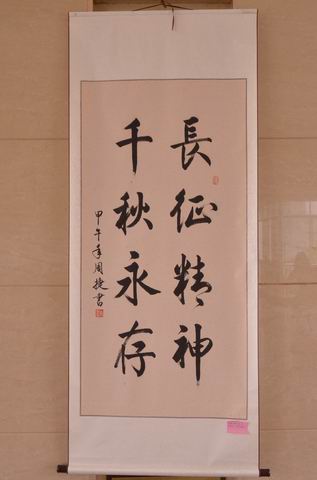 長征精神
千秋永存
甲午年周捷書